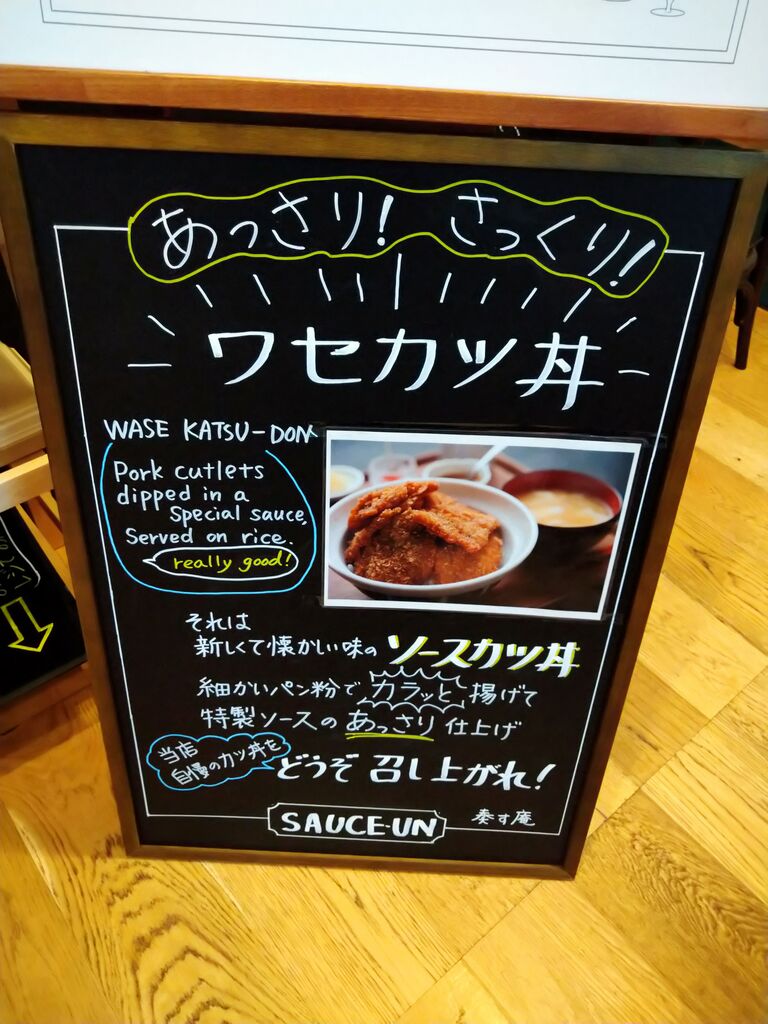 あっさり! さっくり!
ワセカツ丼
WASE KATSU-DON
Pork cutlets
dipped in a
Special sauce,
Served on rice.
really good!
それは
新しくて懐かしい味の ソースカツ丼
細かいパン粉で カラッと 揚げて
特製ソースの あっさり 仕上げ
当店
自慢のカツ丼を
どうぞ 召し上がれ!
SAUCE-UN
奏す庵